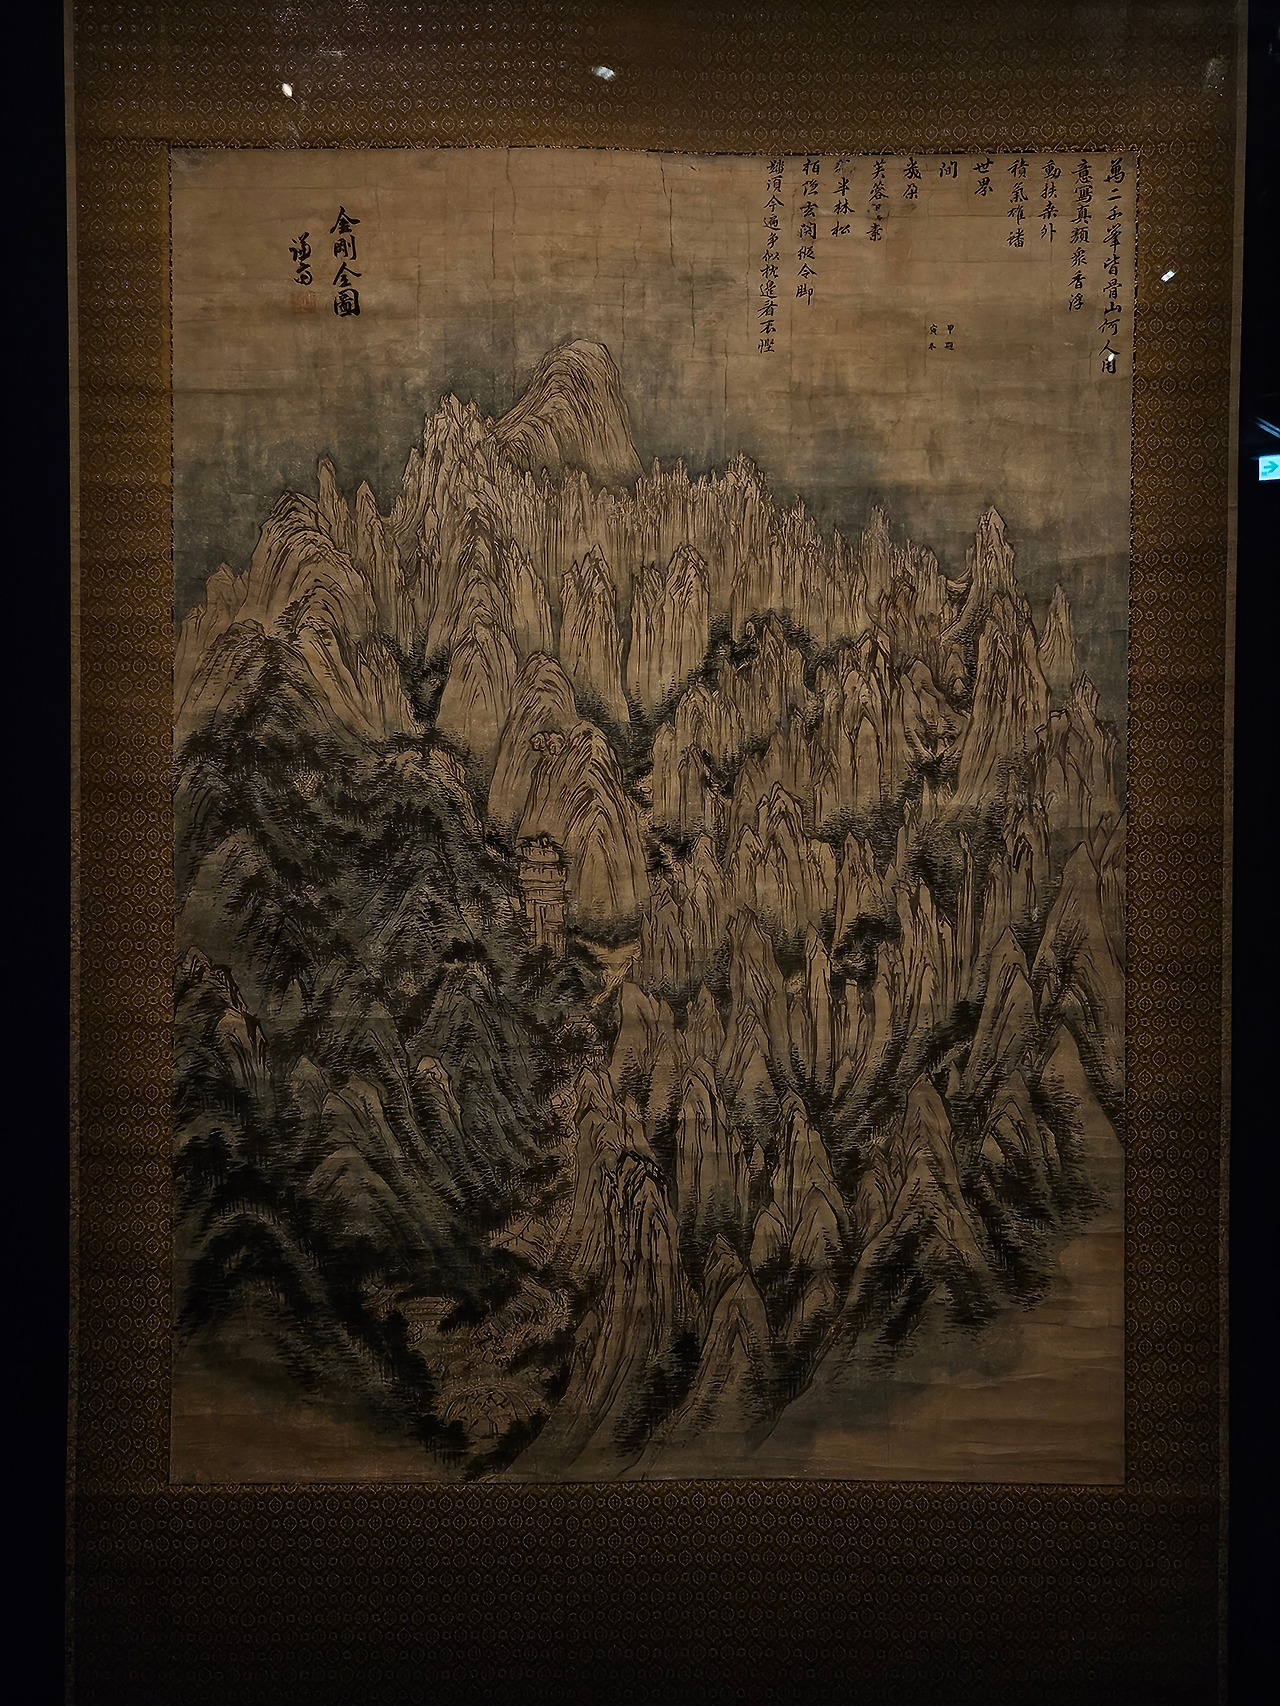 萬二千峯皆骨山何人用
意寫真顔衆香浮
動扶桑外
積氣雄蟠
世界
間
幾朶
芙蓉揚素
彩半林松
栢隱玄關縱令脚
踏須今遍爭似枕邊看不慳
甲寅冬題
金剛全圖
謙齋